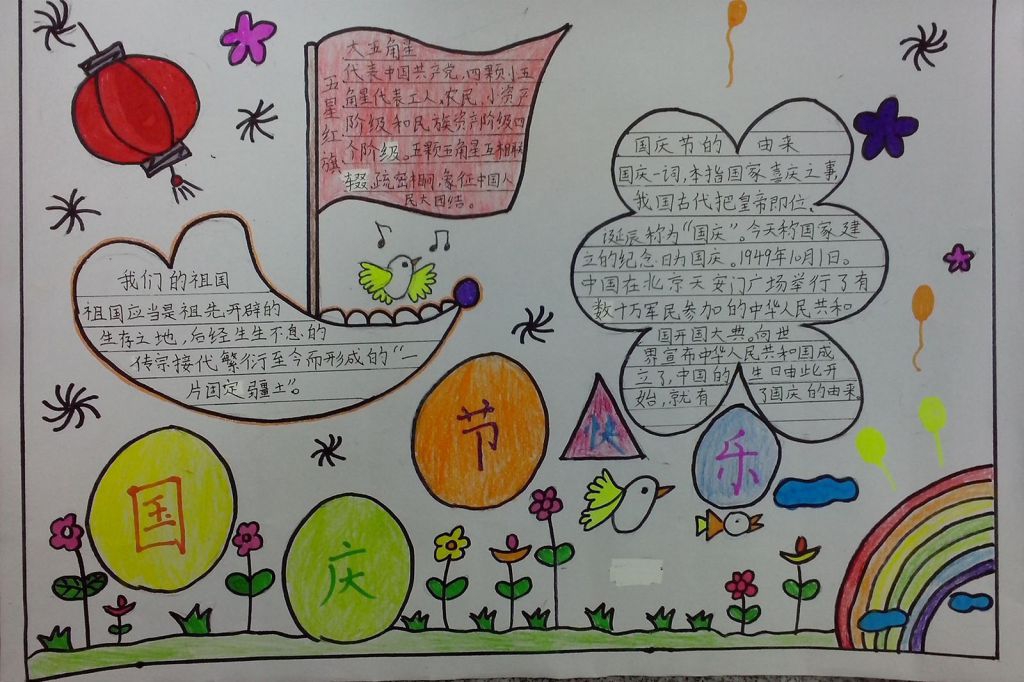 五星红旗
大五角星
代表中国共产党,四颗小五
角星代表工人、农民、小资产
阶级和民族资产阶级四
个阶级。五颗五角星互相联
缀、疏密相间,象征中国人
民大团结。
国庆节的 由来
国庆一词,本指国家喜庆之事,
我国古代把皇帝即位、
诞辰称为“国庆”。今天称国家建
立的纪念日为国庆。1949年10月1日。
中国在北京天安门广场举行了有
数十万军民参加的中华人民共和
国开国大典。向世
界宣布中华人民共和国成
立了,中国的 生日由此开
始,就有 了国庆的由来。
我们的祖国
祖国应当是祖先开辟的
生存之地,后经生生不息的
传宗接代繁衍至今而形成的“一
片固定疆土”。
国
庆
节
快
乐